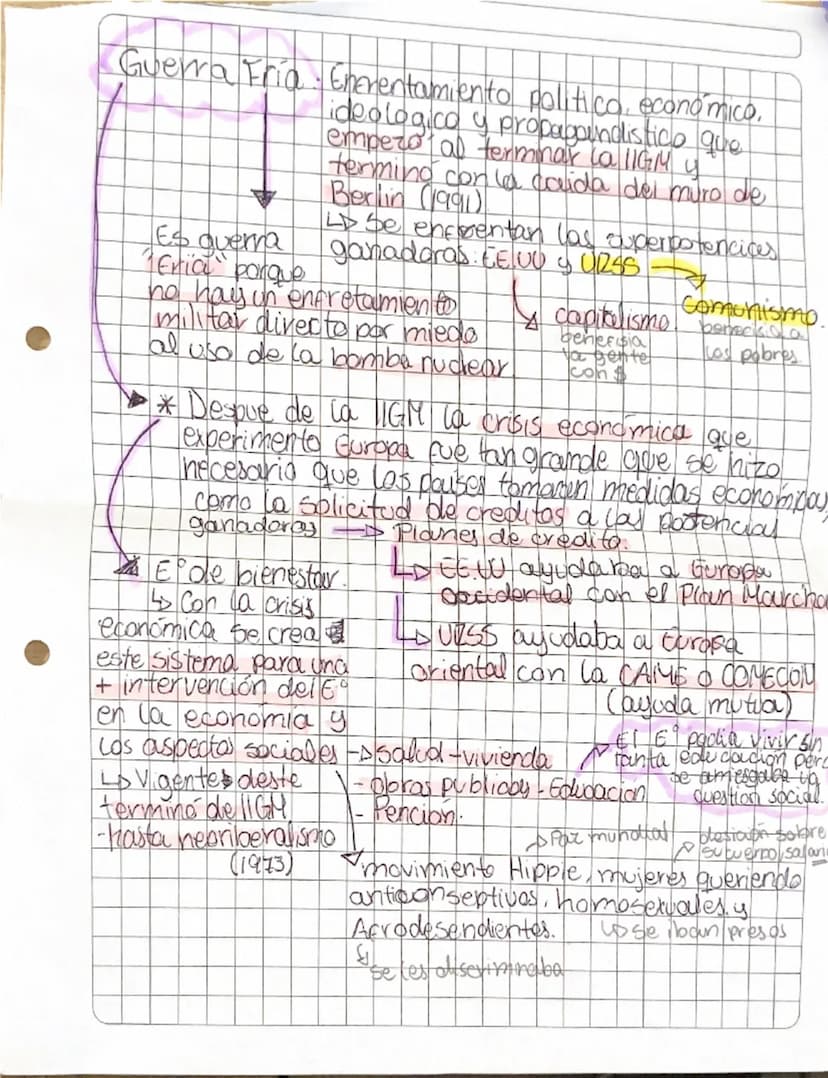 Guerra Fría: Enfrentamiento politico, económico,
ideologico y propagandistico que
empezó al terminar la IIGM y
terminó con la caida del muro de
Berlin (1991)
↳ Se enfrentan las superpotencias
ganadoras: EE.UU y URSS → Comunismo
beneficia a
los pobres
capitalismo
beneficia
la gente
con $
Es guerra
"Fria" porque
no hay un enfretamiento
militar directo por miedo
al uso de la bomba nuclear
* Despue de la IIGM la crisis económica que
experimento Europa fue tan grande que se hizo
necesario que los paises tomaran medidas economicas,
como la solicitud de creditos a las potencias
ganadoras → Planes de credito.
↳ EE.UU ayudaba a Europa
occidental con el Plan Marcha
↳ URSS ayudaba a Europa
oriental con la CAME o COMECON
(ayuda mutua)
* E° de bienestar
↳ Con la crisis
económica se crea
este sistema para una
+ intervención del E°
en la economía y
los aspectos sociales → Salud - vivienda
- obras publicas - Educacion
- Pención.
El E° podia vivir sin
tanta educación pero
se arriesgaba la
cuestion social.
↳ Vigente deste
termino de IIGM
- hasta neoriberalismo
(1973)
→ Paz mundial
sobre
su cuerpo, salario
movimiento Hippie, mujeres queriendo
anticonseptivos, homosexuales y
Afrodesendientes.
↳ se iban presos
↳ se les discriminaba